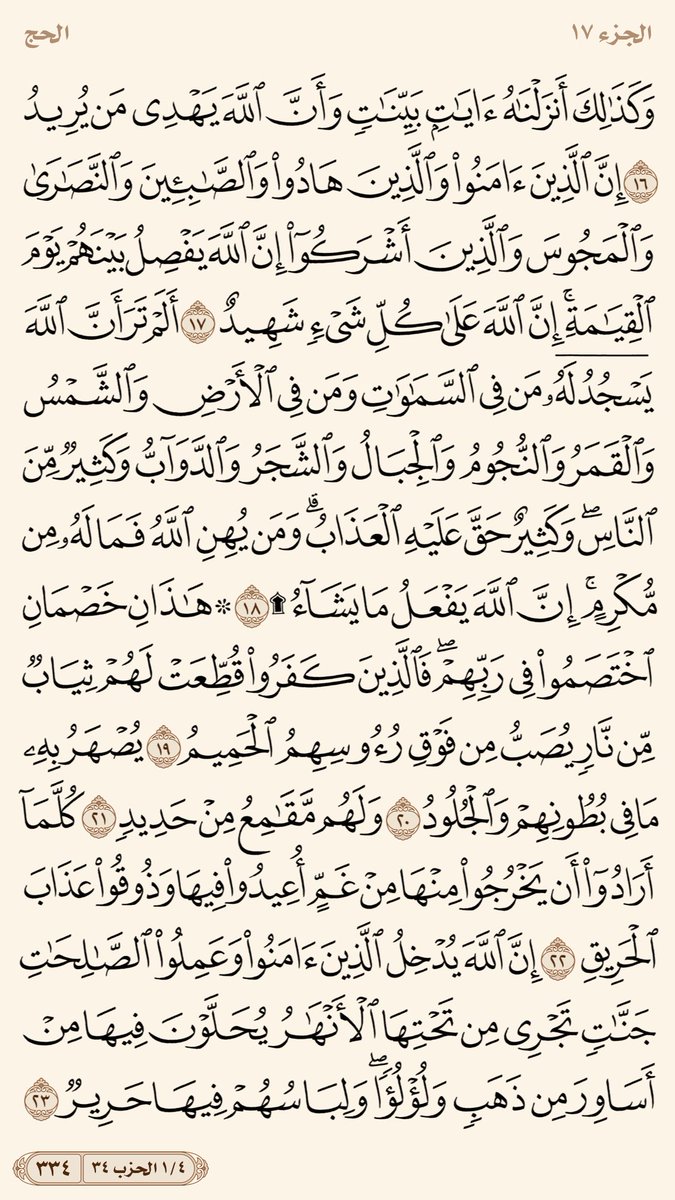 الجزء ١٧
الحج
وَكَذَٰلِكَ أَنزَلْنَٰهُ ءَايَٰتِۭ بَيِّنَٰتٖ وَأَنَّ ٱللَّهَ يَهۡدِي مَن يُرِيدُ
١٦ إِنَّ ٱلَّذِينَ ءَامَنُواْ وَٱلَّذِينَ هَادُواْ وَٱلصَّٰبِـِٔينَ وَٱلنَّصَٰرَىٰ
وَٱلۡمَجُوسَ وَٱلَّذِينَ أَشۡرَكُوٓاْ إِنَّ ٱللَّهَ يَفۡصِلُ بَيۡنَهُمۡ يَوۡمَ
ٱلۡقِيَٰمَةِۚ إِنَّ ٱللَّهَ عَلَىٰ كُلِّ شَيۡءٖ شَهِيدٌ ١٧ أَلَمۡ تَرَ أَنَّ ٱللَّهَ
يَسۡجُدُۤ لَهُۥ مَن فِي ٱلسَّمَٰوَٰتِ وَمَن فِي ٱلۡأَرۡضِ وَٱلشَّمۡسُ
وَٱلۡقَمَرُ وَٱلنُّجُومُ وَٱلۡجِبَالُ وَٱلشَّجَرُ وَٱلدَّوَآبُّ وَكَثِيرٞ مِّنَ
ٱلنَّاسِۖ وَكَثِيرٌ حَقَّ عَلَيۡهِ ٱلۡعَذَابُۗ وَمَن يُهِنِ ٱللَّهُ فَمَا لَهُۥ مِن
مُّكۡرِمٍۚ إِنَّ ٱللَّهَ يَفۡعَلُ مَا يَشَآءُ ۩ ١٨ ۞ هَٰذَانِ خَصۡمَانِ
ٱخۡتَصَمُواْ فِي رَبِّهِمۡۖ فَٱلَّذِينَ كَفَرُواْ قُطِّعَتۡ لَهُمۡ ثِيَابٞ
مِّن نَّارٖ يُصَبُّ مِن فَوۡقِ رُءُوسِهِمُ ٱلۡحَمِيمُ ١٩ يُصۡهَرُ بِهِۦ
مَا فِي بُطُونِهِمۡ وَٱلۡجُلُودُ ٢٠ وَلَهُم مَّقَٰمِعُ مِنۡ حَدِيدٖ ٢١ كُلَّمَآ
أَرَادُوٓاْ أَن يَخۡرُجُواْ مِنۡهَا مِنۡ غَمٍّ أُعِيدُواْ فِيهَا وَذُوقُواْ عَذَابَ
ٱلۡحَرِيقِ ٢٢ إِنَّ ٱللَّهَ يُدۡخِلُ ٱلَّذِينَ ءَامَنُواْ وَعَمِلُواْ ٱلصَّٰلِحَٰتِ
جَنَّٰتٖ تَجۡرِي مِن تَحۡتِهَا ٱلۡأَنۡهَٰرُ يُحَلَّوۡنَ فِيهَا مِنۡ
أَسَاوِرَ مِن ذَهَبٖ وَلُؤۡلُؤٗاۖ وَلِبَاسُهُمۡ فِيهَا حَرِيرٞ ٢٣
١/٤ الحزب ٣٤ ٣٣٤